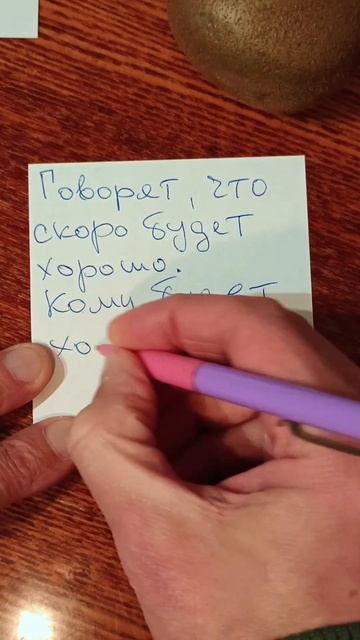 Говорят, что
скоро будет
хорошо.
Кому будет
хо